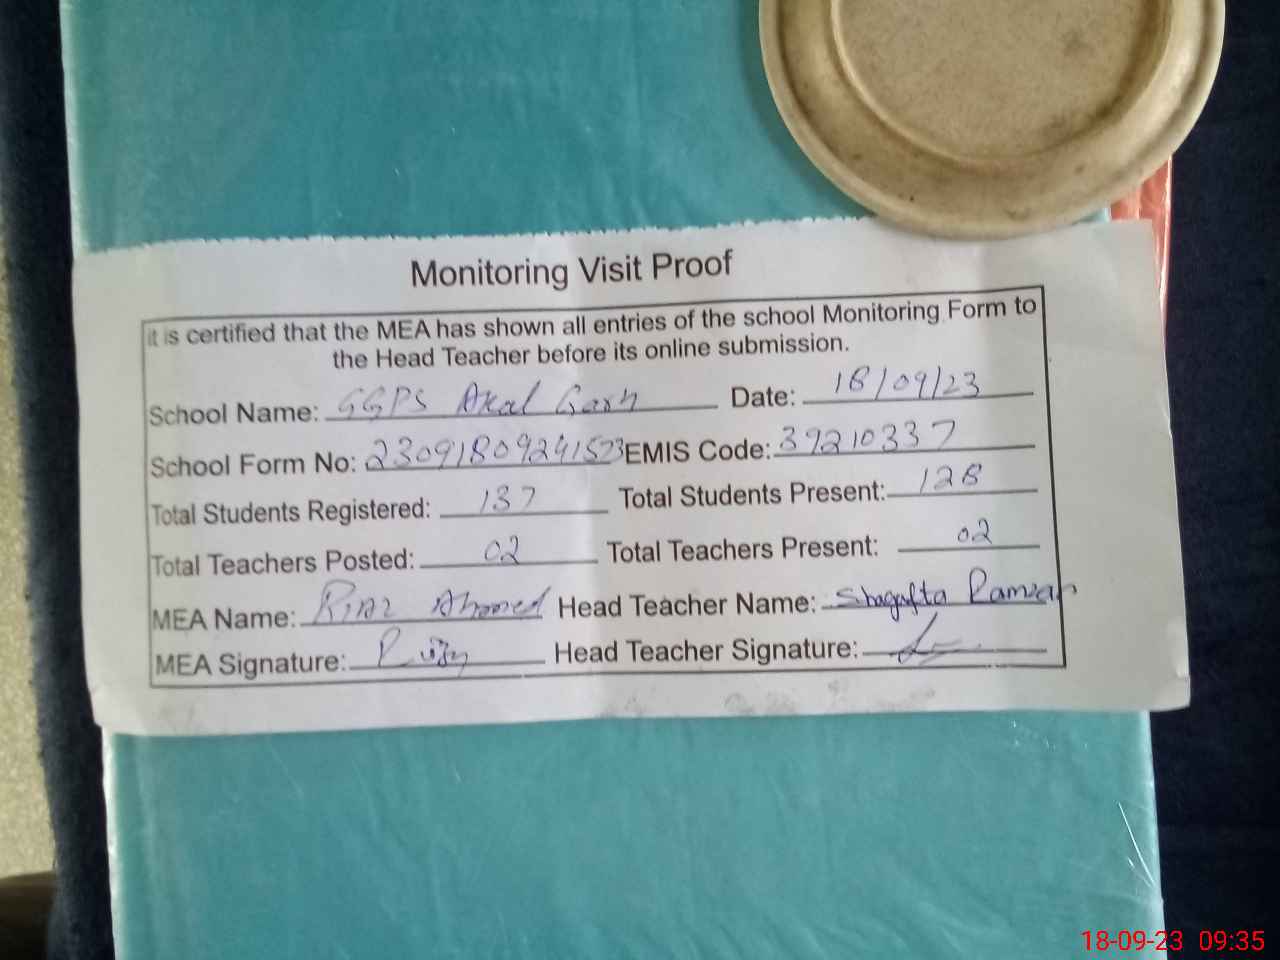 Monitoring Visit Proof
it is certified that the MEA has shown all entries of the school Monitoring Form to
the Head Teacher before its online submission.
School Name: GGPS Akal Garh Date: 18/09/23
School Form No: 23091809241573 EMIS Code: 39210337
Total Students Registered: 137 Total Students Present: 128
Total Teachers Posted: 02 Total Teachers Present: 02
MEA Name: Riaz Ahmed Head Teacher Name: Shagufta Ramzan
MEA Signature: Head Teacher Signature:
18-09-23 09:35